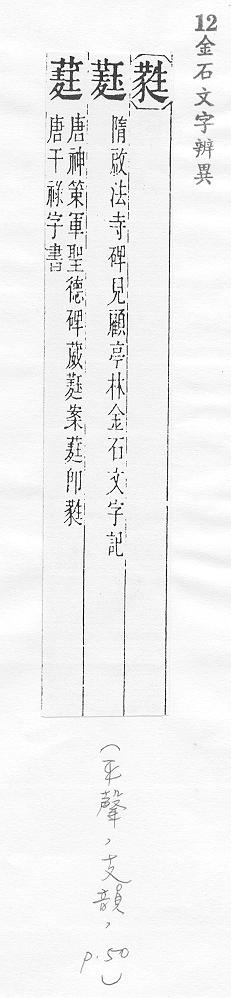 12金石文字辨異
蕤
隋啟法寺碑見顧亭林金石文字記
唐神策軍聖德碑葳案即蕤
唐干祿字書
(平聲,支韻,p.50)